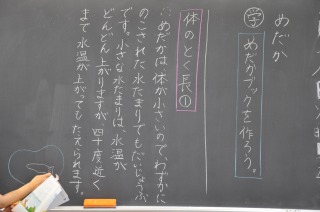 めだか
学 めだかブックを作ろう。
体のとく長①
∴めだかは体が小さいので、わずかに
のこされた水たまりでもだいじょうぶ
です。小さな水たまりは、水温が
どんどん上がりますが、四十度近く
まで水温が上がってもたえられます。